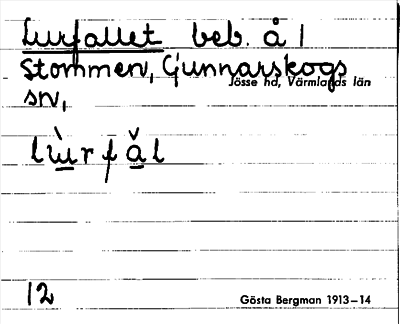 Lurfallet beb. å 1
Stommen, Gunnarskogs
Jösse hd, Värmlands län
sn,
lùrfǎl
12
Gösta Bergman 1913–14